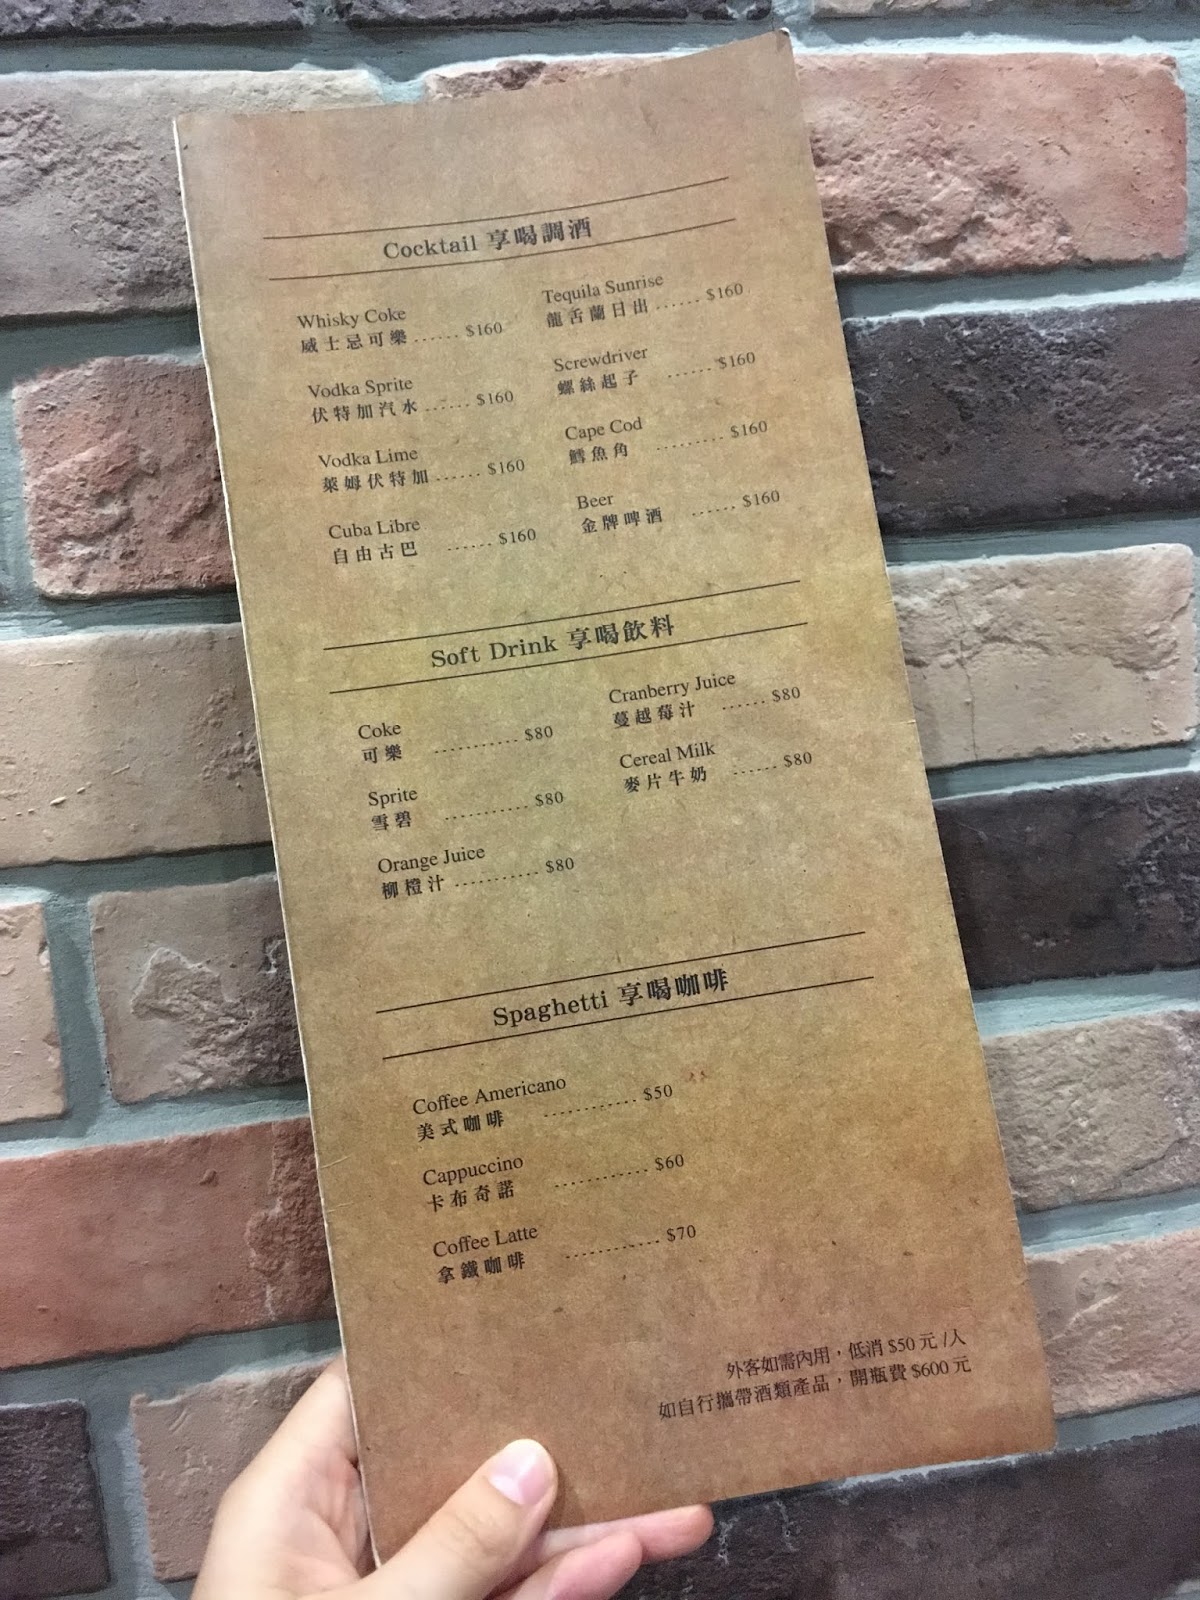 Cocktail 享喝調酒
Whisky Coke
威士忌可樂 ...... $160
Vodka Sprite
伏特加汽水 ...... $160
Vodka Lime
萊姆伏特加 ...... $160
Cuba Libre
自由古巴 ...... $160
Tequila Sunrise
龍舌蘭日出 ...... $160
Screwdriver
螺絲起子 ...... $160
Cape Cod
鱈魚角 ......... $160
Beer
金牌啤酒 ...... $160
Soft Drink 享喝飲料
Coke
可樂 ........... $80
Sprite
雪碧 ........... $80
Orange Juice
柳橙汁 ........... $80
Cranberry Juice
蔓越莓汁 ...... $80
Cereal Milk
麥片牛奶 ...... $80
Spaghetti 享喝咖啡
Coffee Americano
美式咖啡 ............ $50
Cappuccino
卡布奇諾 ............ $60
Coffee Latte
拿鐵咖啡 ............ $70
外客如需內用，低消 $50 元 /人
如自行攜帶酒類產品，開瓶費 $600 元